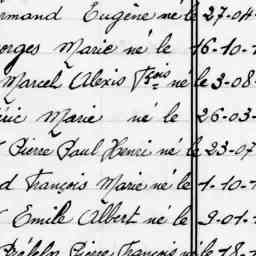 rmand Eugène né le 27-04-
orges Marie né le 16-10-1
Marcel Alexis né le 3-08-
Marie né le 26-03-
Pierre Paul Henri né le 23-07
d François Marie né le 1-10-1
Emile Albert né le 9-01-
Pierre François né le 18-1